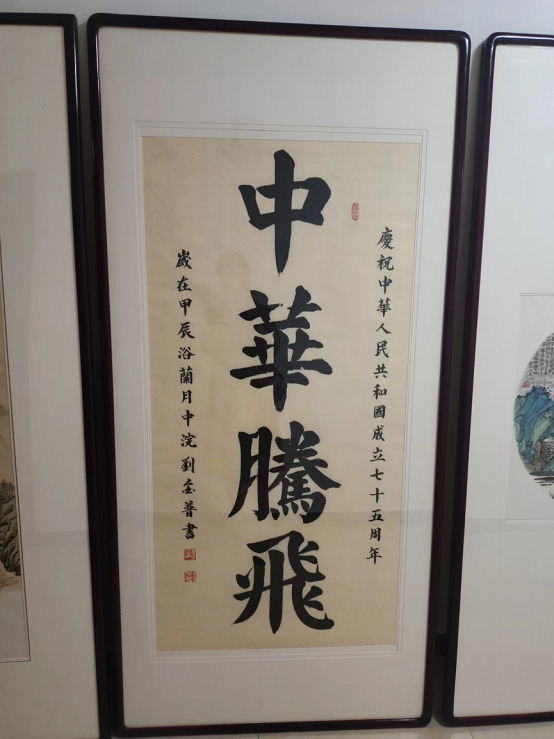 慶祝中華人民共和國成立七十五周年
中華騰飛
歲在甲辰浴蘭月中浣劉金普書